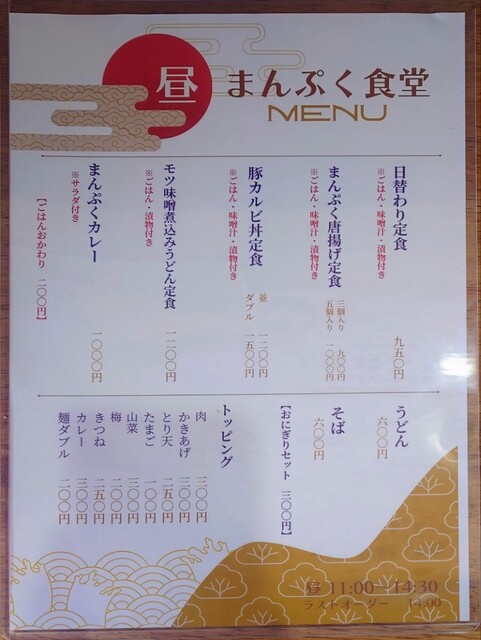 昼
まんぷく食堂
MENU
日替わり定食
※ごはん・味噌汁・漬物付き
九五〇円
まんぷく唐揚げ定食
※ごはん・味噌汁・漬物付き
三個入り 九〇〇円
五個入り 一〇〇〇円
豚カルビ丼定食
※ごはん・味噌汁・漬物付き
並 一二〇〇円
ダブル 一五〇〇円
モツ味噌煮込みうどん定食
※ごはん・漬物付き
一二〇〇円
まんぷくカレー
※サラダ付き
一〇〇〇円
【ごはんおかわり 二〇〇円】
うどん
六〇〇円
そば
六〇〇円
【おにぎりセット 三〇〇円】
トッピング
肉 三〇〇円
かきあげ 三〇〇円
とり天 二五〇円
たまご 一〇〇円
山菜 三〇〇円
梅 二〇〇円
きつね 二五〇円
カレー 三〇〇円
麺ダブル 二〇〇円
昼 11:00―14:30
ラストオーダー 14:00